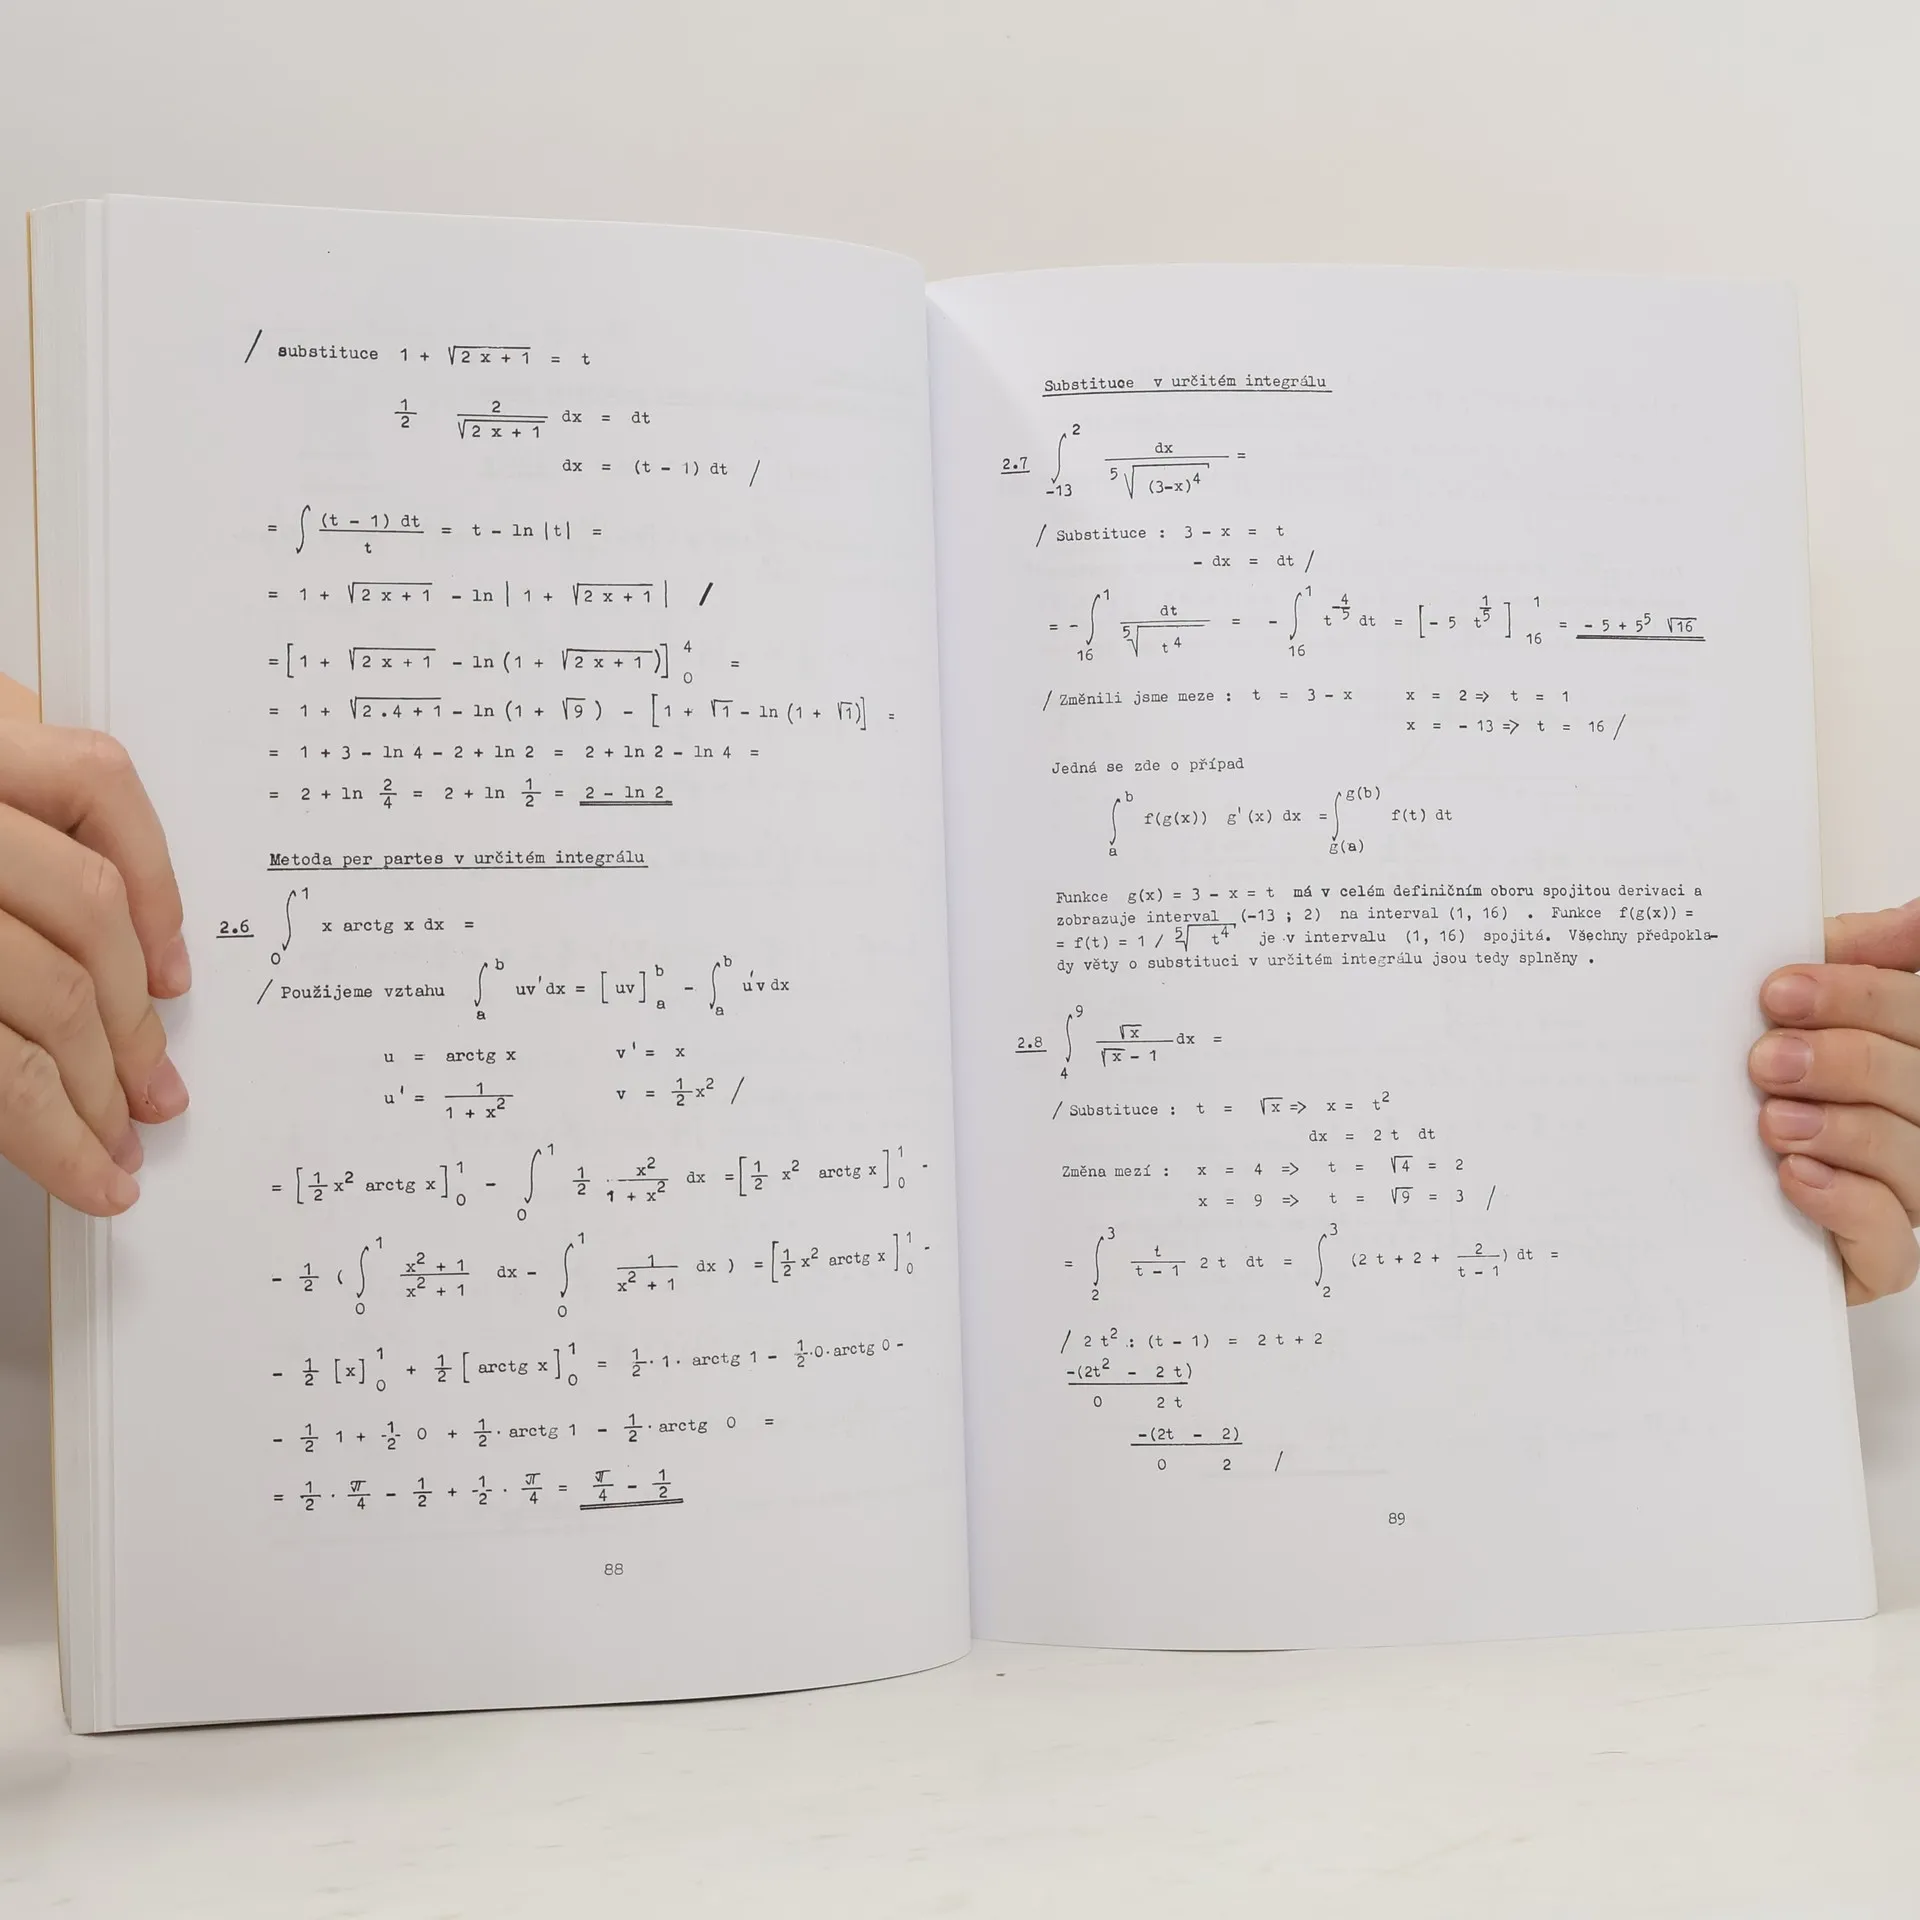 / substituce 1 + √(2 x + 1) = t
1/2 2/√(2 x + 1) dx = dt
dx = (t - 1) dt /
= ∫ (t - 1) dt / t = t - ln |t| =
= 1 + √(2 x + 1) - ln | 1 + √(2 x + 1) | /
= [ 1 + √(2 x + 1) - ln (1 + √(2 x + 1) )]₀⁴ =
= 1 + √(2 . 4 + 1) - ln (1 + √9 ) - [ 1 + √1 - ln (1 + √1)] =
= 1 + 3 - ln 4 - 2 + ln 2 = 2 + ln 2 - ln 4 =
= 2 + ln 2/4 = 2 + ln 1/2 = 2 - ln 2
Metoda per partes v určitém integrálu
2.6 ∫₀¹ x arctg x dx =
/ Použijeme vztahu ∫ₐᵇ uv'dx = [ uv ]ₐᵇ - ∫ₐᵇ u'v dx
u = arctg x v' = x
u' = 1/(1 + x²) v = 1/2 x² /
= [ 1/2 x² arctg x ]₀¹ - ∫₀¹ 1/2 . x²/(1 + x²) dx = [ 1/2 x² arctg x ]₀¹ -
- 1/2 ( ∫₀¹ (x² + 1)/(x² + 1) dx - ∫₀¹ 1/(x² + 1) dx ) = [ 1/2 x² arctg x ]₀¹ -
- 1/2 [x]₀¹ + 1/2 [ arctg x ]₀¹ = 1/2 . 1 . arctg 1 - 1/2 .0. arctg 0 -
- 1/2 1 + 1/2 0 + 1/2 . arctg 1 - 1/2 . arctg 0 =
= 1/2 . π/4 - 1/2 + 1/2 . π/4 = π/4 - 1/2
88
Substituce v určitém integrálu
2.7 ∫₋₁₃² dx / ⁵√((3-x)⁴) =
/ Substituce : 3 - x = t
- dx = dt /
= - ∫₁₆¹ dt / ⁵√(t⁴) = - ∫₁₆¹ t^(-4/5) dt = [ - 5 t^(1/5) ]₁₆¹ = - 5 + 5⁵ √16
/ Změnili jsme meze : t = 3 - x x = 2 => t = 1
x = - 13 => t = 16 /
Jedná se zde o případ
∫ₐᵇ f(g(x)) g'(x) dx = ∫_g(a)^g(b) f(t) dt
Funkce g(x) = 3 - x = t má v celém definičním oboru spojitou derivaci a
zobrazuje interval (-13 ; 2) na interval (1, 16) . Funkce f(g(x)) =
= f(t) = 1 / ⁵√(t⁴) je v intervalu (1, 16) spojitá. Všechny předpokla-
dy věty o substituci v určitém integrálu jsou tedy splněny .
2.8 ∫₄⁹ √x/(√x - 1) dx =
/ Substituce : t = √x => x = t²
dx = 2 t dt
Změna mezí : x = 4 => t = √4 = 2
x = 9 => t = √9 = 3 /
= ∫₂³ t/(t - 1) 2 t dt = ∫₂³ (2 t + 2 + 2/(t - 1)) dt =
/ 2 t² : (t - 1) = 2 t + 2
-(2t² - 2 t)
0 2 t
-(2t - 2)
0 2 /
89